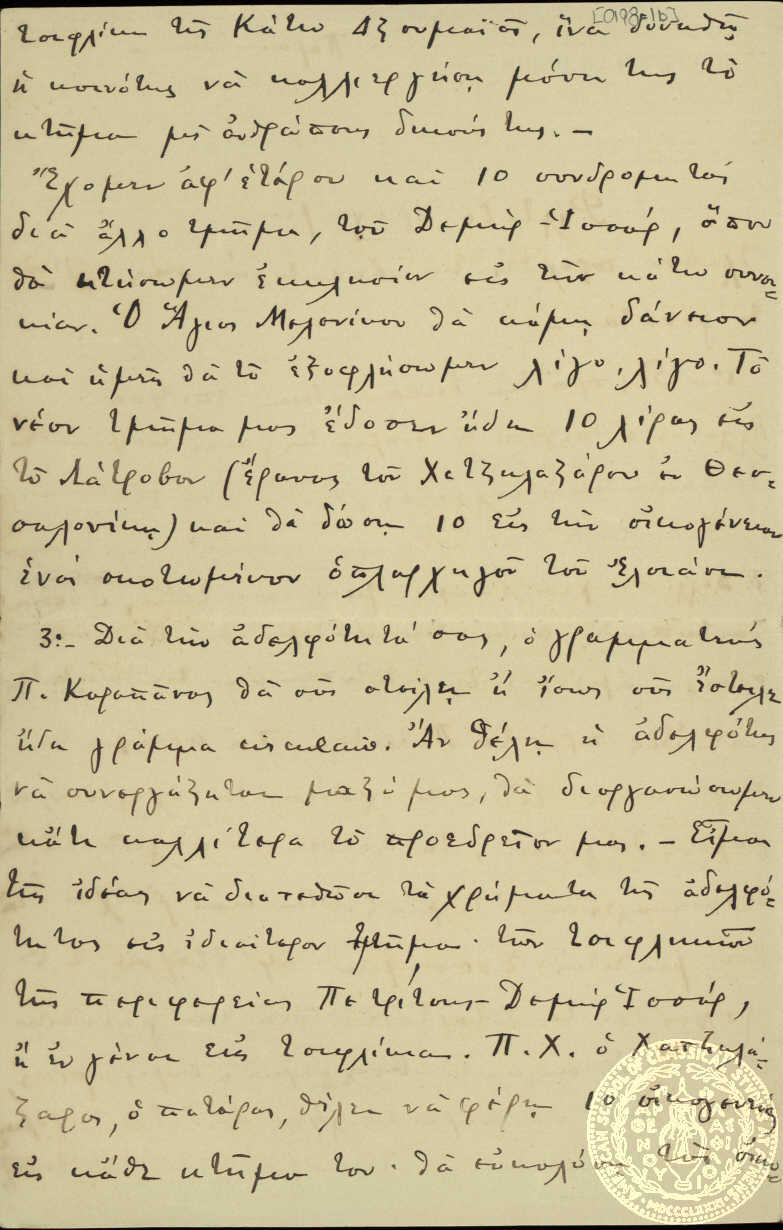 [019a-1b]
τσιφλίκι τῆς Κάτω Τζουμαϊᾶς, ἵνα δυνηθῇ
ἡ κοινότης νὰ καλλιεργήσῃ μόνη της τὸ
κτῆμα μὲ ἀνθρώπους δικούς της. —
Ἔχομεν ἀφ' ἑτάρου καὶ 10 συνδρομητὰς
διὰ ἄλλο τμῆμα, τοῦ Δεμὶρ-Ἱσσάρ, ὅπου
θὰ κτίσωμεν ἐκκλησίαν εἰς τὴν κάτω συνοι=
κίαν. Ὁ Ἅγιος Μελενίκου θὰ κάμῃ δάνειον
καὶ ἡμεῖς θὰ τὸ ἐξοφλήσωμεν λίγο, λίγο. Τὸ
νέον τμῆμα μας ἔδοσεν ἤδη 10 λίρας εἰς
τὸ Λάτροβον (Ἔρανος τοῦ Χατζηλαζάρου ἐν Θεσ=
σαλονίκῃ) καὶ θὰ δώσῃ 10 εἰς τὴν οἰκογένειαν
ἑνὸς σκοτωμένου ὁπλαρχηγοῦ τοῦ Ἐλσιάνι.
3ο:- Διὰ τὴν ἀδελφότητά σας, ὁ γραμματεὺς
Π. Καραπᾶνος θὰ σᾶς στείλῃ ἢ ἴσως σᾶς ἔστειλε
ἤδη γράμμα circulaire. Ἂν θέλῃ ἡ ἀδελφότης
νὰ συνεργάζηται μαζύ μας, θὰ διοργανώσωμεν
κἄτι καλλίτερα τὸ προεδρεῖον μας. — Εἶμαι
τῆς ἰδέας νὰ διατεθῶσι τὰ χρήματα τῆς ἀδελφό=
τητος εἰς ἰδιαίτερον τμῆμα τῶν τσιφλικιῶν
τῆς περιφερείας Πετρίτσης-Δεμὶρ Ἱσσάρ,
ἢ ἐν γένει εἰς τσιφλίκια. Π.Χ. ὁ Χατζηλά=
ζαρος, ὁ πατέρας, θέλει νὰ φέρῃ 10 οἰκογενείας
εἰς κάθε κτῆμα του. θὰ εὐκολύνῃ τὰς οἰκο=